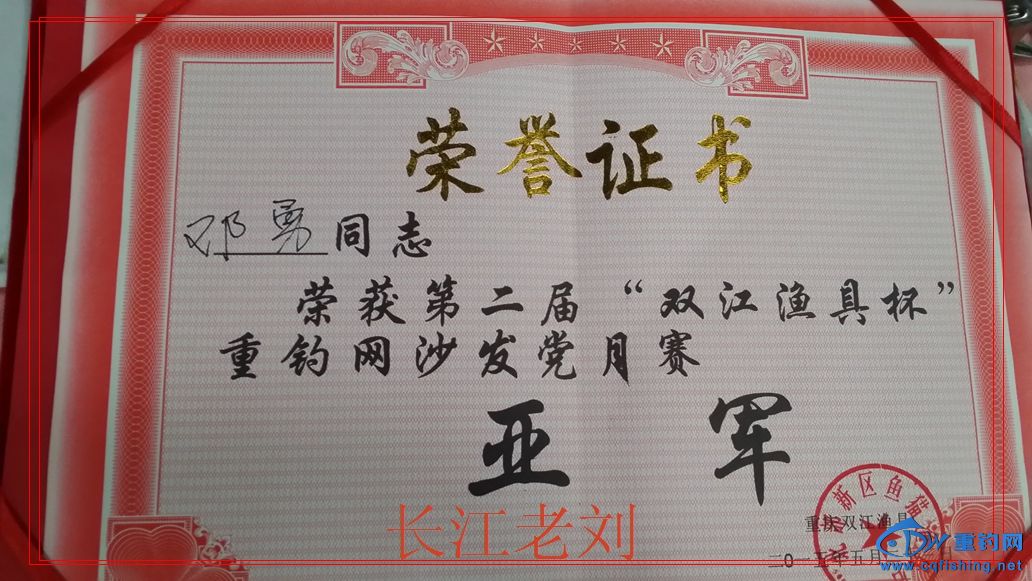 荣誉证书
邓勇同志
荣获第二届“双江渔具杯”
重钓网沙发党月赛
亚军
新区鱼猫
重庆双江渔具
二0一五年五月
长江老刘
重钓网
www.cqfishing.net